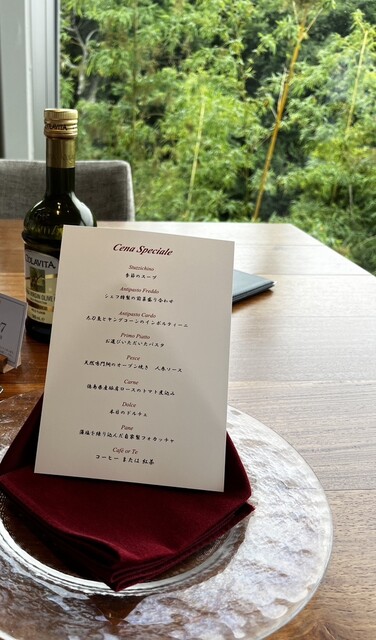 Cena Speciale
Stuzzichino
季節のスープ
Antipasto Freddo
シェフ特製の前菜盛り合わせ
Antipasto Cardo
丸ひ兎とヤングコーンのインボルティーニ
Primo Piatto
お選びいただいたパスタ
Pesce
天然鳴門鯛のオーブン焼き 人参ソース
Carne
徳島県産豚肩ロースのトマト煮込み
Dolce
本日のドルチェ
Pane
藻塩を練り込んだ自家製フォカッチャ
Café or Te
コーヒー または 紅茶
COLAVITA
7